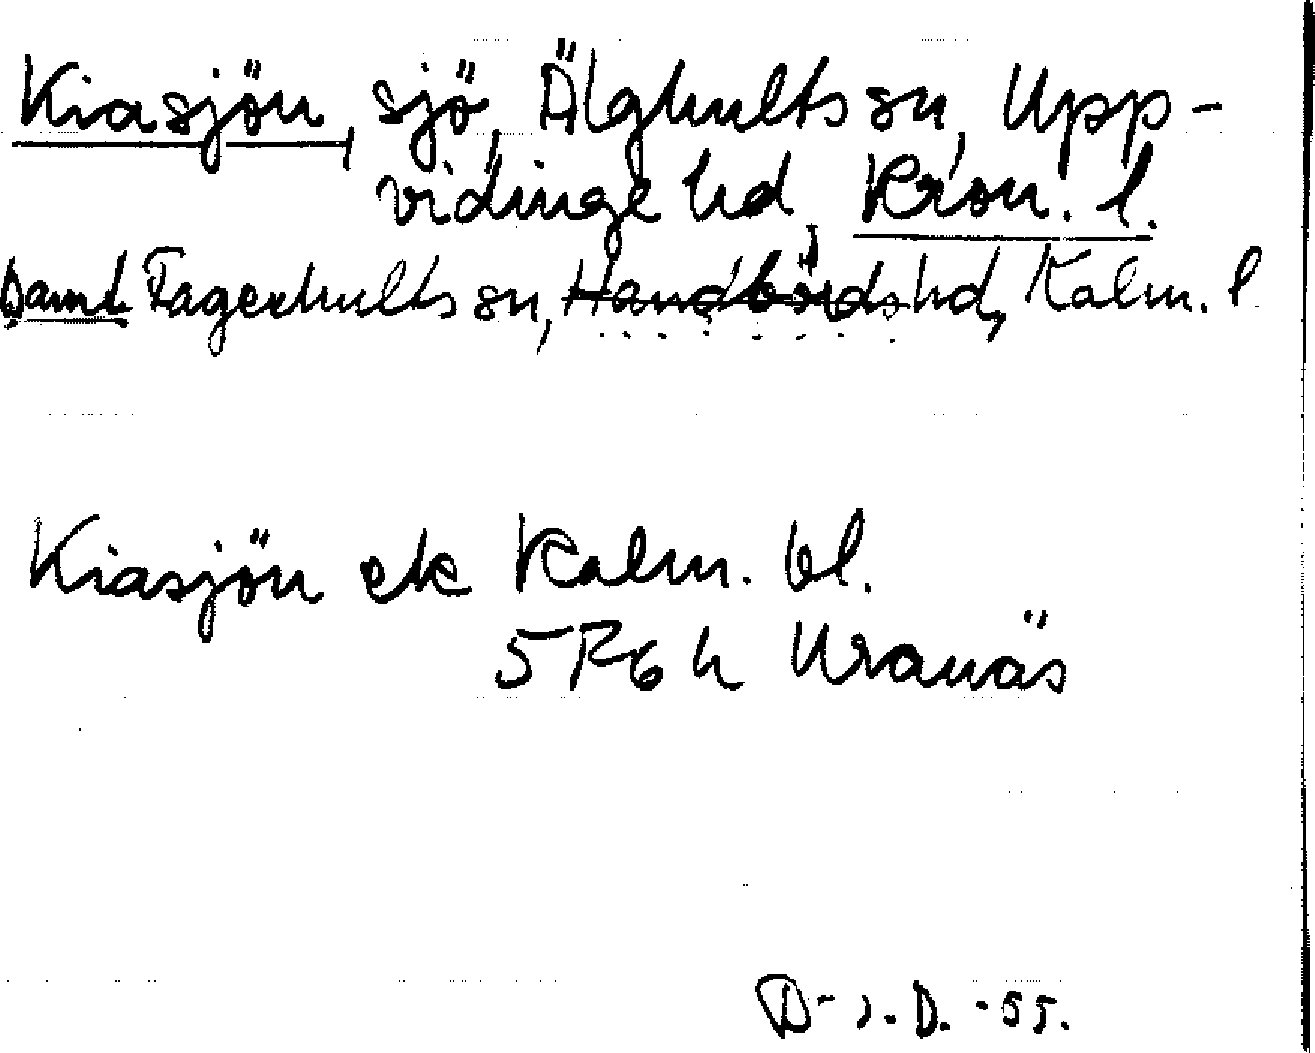 Kiasjön, sjö, Älghults sn, Upp-
vidinge hd, Kron. l.
samt Fagerhults sn, Handbörds hd, Kalm. l
Kiasjön ek Kalm. bl.
5F6h Uranäs
D. -55.